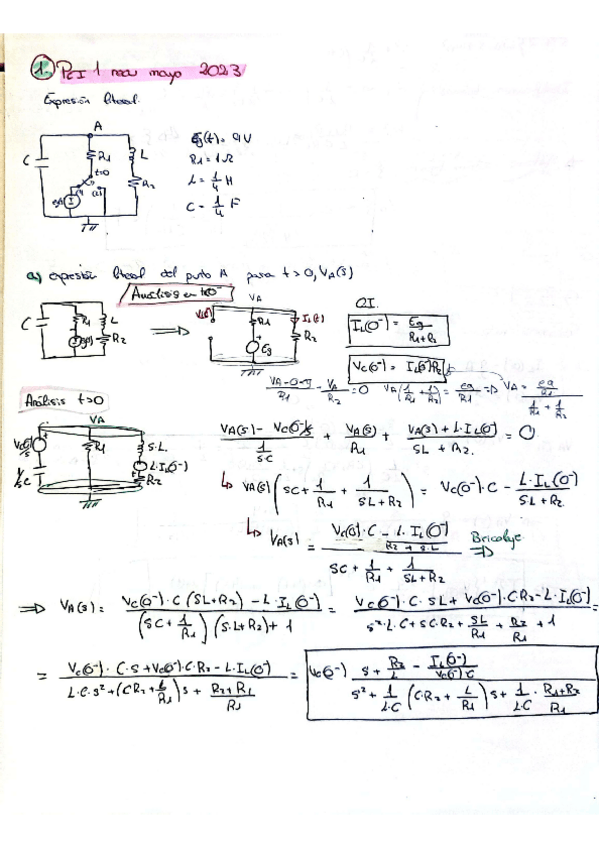 1. PEI 1 mayo 2023
Expresión literal.
A
C
R1
L
t=0
R2
eg(t)
Eg(t) = 9V
R1 = 1Ω
L = 1/4 H
C = 1/4 F
a) expresión literal del punto A para t>0, VA(s)
Análisis en t=0⁻
C R1 L R2
⟹
VA
R1 IL(t) R2
Eg
IL(0⁻) = Eg/(R1+R2)
VC(0⁻) = IL(0⁻)R2
VA(1/R1 + 1/R2) = eg/R1 ⟹ VA = (eg/R1)/(1/R1 + 1/R2)
Análisis t>0
VA
VC(0⁻)/s
1/sC
R1
s·L
L·IL(0⁻)
R2
(VA(s) - VC(0⁻)/s)/(1/s·C) + VA(s)/R1 + (VA(s) + L·IL(0⁻))/(SL + R2) = 0
↳ VA(s) (SC + 1/R1 + 1/(SL+R2)) = VC(0⁻)·C - L·IL(0⁻)/(SL+R2)
↳ VA(s) = (VC(0⁻)·C - L·IL(0⁻)/(R2+s·L))/(SC + 1/R1 + 1/(SL+R2)) Bricolaje ⟹
⟹ VA(s) = (VC(0⁻)·C (SL+R2) - L·IL(0⁻))/((SC + 1/R1)(S·L+R2) + 1) = (VC(0⁻)·C·SL + VC(0⁻)·C·R2 - L·IL(0⁻))/(s²·L·C + SC·R2 + SL/R1 + R2/R1 + 1) =
= (VC(0⁻)·C·S + VC(0⁻)·C·R2 - L·IL(0⁻))/(L·C·s² + (CR2 + 1/R1)s + (R2+R1)/R1) = VC(0⁻) (s + R2/L - IL(0⁻)/(VC(0⁻)·C))/(s² + 1/(L·C) (C·R2 + L/R1) s + 1/(L·C) · (R1+R2)/R1)